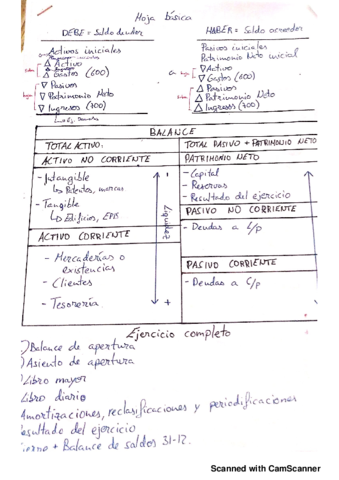 Hoja básica
DEBE = Saldo deudor
HABER = Saldo acreedor
Activos iniciales
△ Activo
△ Gastos (600)
▽ Pasivo
▽ Patrimonio Neto
▽ Ingresos (700)
Pasivos iniciales
Patrimonio Neto inicial
a
▽ Activo
▽ Gastos (600)
△ Pasivo
△ Patrimonio Neto
△ Ingresos (700)
BALANCE
TOTAL ACTIVO:
TOTAL PASIVO + PATRIMONIO NETO
ACTIVO NO CORRIENTE
PATRIMONIO NETO
- Intangible
↳ Patentes, marcas
- Tangible
↳ Edificios,
- Capital
- Reservas
- Resultado del ejercicio
PASIVO NO CORRIENTE
- Deudas a L/p
-
Liquidez
+
ACTIVO CORRIENTE
- Mercaderías o
existencias
- Clientes
- Tesorería
PASIVO CORRIENTE
- Deudas a C/p
Ejercicio completo
)Balance de apertura
)Asiento de apertura
)Libro mayor
Libro diario
Amortizaciones, reclasificaciones y periodificaciones
esultado del ejercicio
ierre + Balance de saldos 31-12.
Scanned with CamScanner